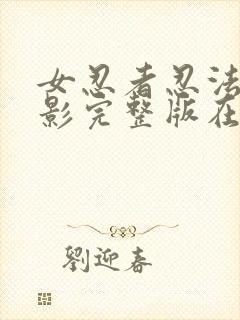 女忍者忍法
影完整版在
劉迎春